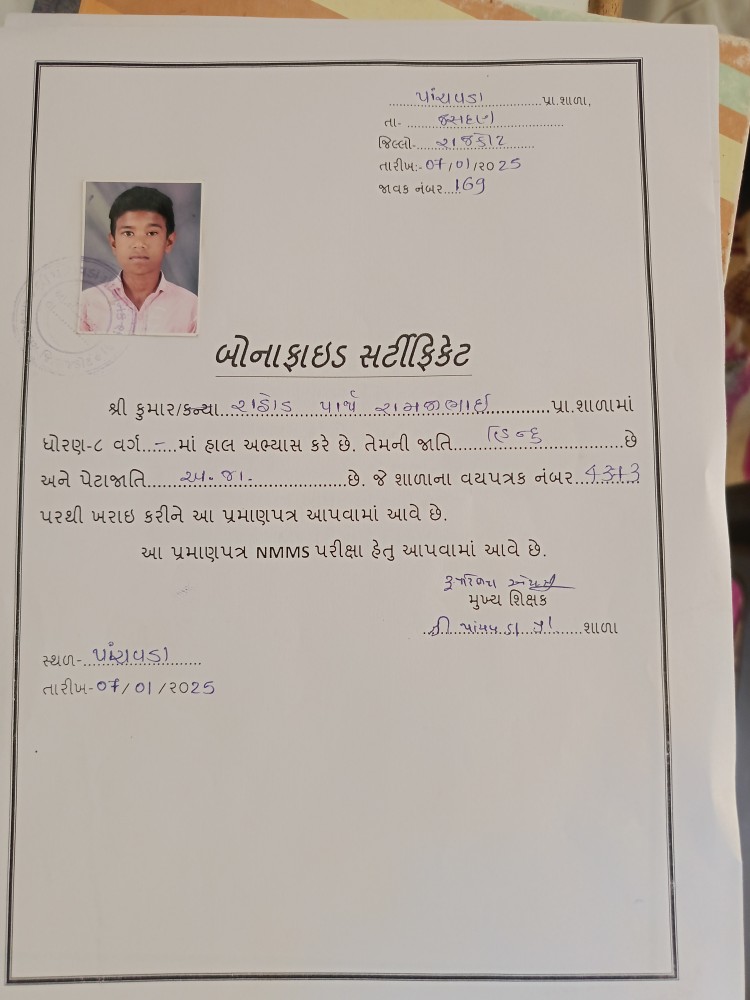 પાંચવડા પ્રા.શાળા,
તા- જસદણ
જિલ્લો- રાજકોટ
તારીખ:- 07/01/૨૦25
જાવક નંબર 169
બોનાફાઇડ સર્ટીફિકેટ
શ્રી કુમાર/કન્યા રાઠોડ પાર્થ રામજીભાઈ પ્રા.શાળામાં
ધોરણ-૮ વર્ગ - માં હાલ અભ્યાસ કરે છે. તેમની જાતિ હિન્દુ છે
અને પેટાજાતિ અ.જા. છે. જે શાળાના વયપત્રક નંબર
પરથી ખરાઇ કરીને આ પ્રમાણપત્ર આપવામાં આવે છે.
આ પ્રમાણપત્ર NMMS પરીક્ષા હેતુ આપવામાં આવે છે.
મુખ્ય શિક્ષક
શ્રી પાંચવડા પ્રા શાળા
સ્થળ- પાંચવડા
તારીખ- 07/01/૨૦25